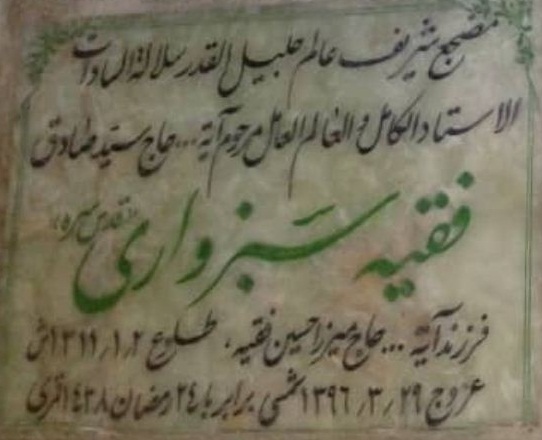 مضجع شریف عالم جلیل القدر سلالة السادات
الاستاد الکامل و العالم العامل مرحوم آیة... حاج سید صادق
فقیه سبزواری «قدس سره»
فرزند آیة... حاج میرزا حسین فقیه، طلوع ۱۳۱۱٫۱٫۲ش
عروج ۲۹ ٫۳ ٫۱۳۹۶ شمسی برابر با ۲۴ رمضان ۱۴۳۸ قمری